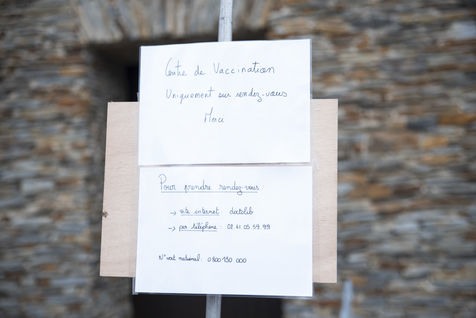 Centre de Vaccination
Uniquement sur rendez-vous
Merci
Pour prendre rendez-vous
→ site internet doctolib
→ par téléphone : 02.41.05.59.99
N° vert national : 0 800 130 000